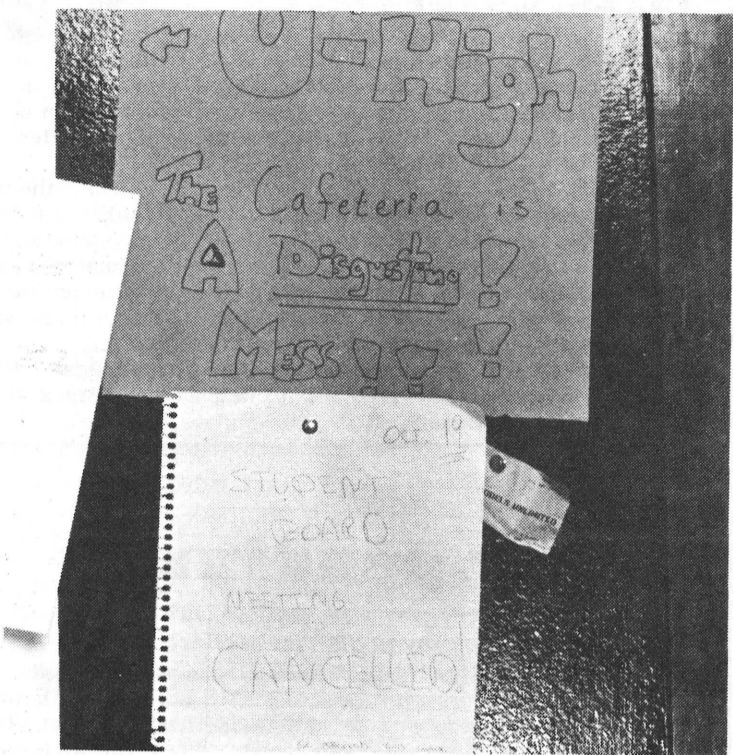 U-High
The Cafeteria is
A Disgusting !
MESS ! ! !
Oct. 19
STUDENT
BOARD
MEETING
CANCELLED
UNLIMITED